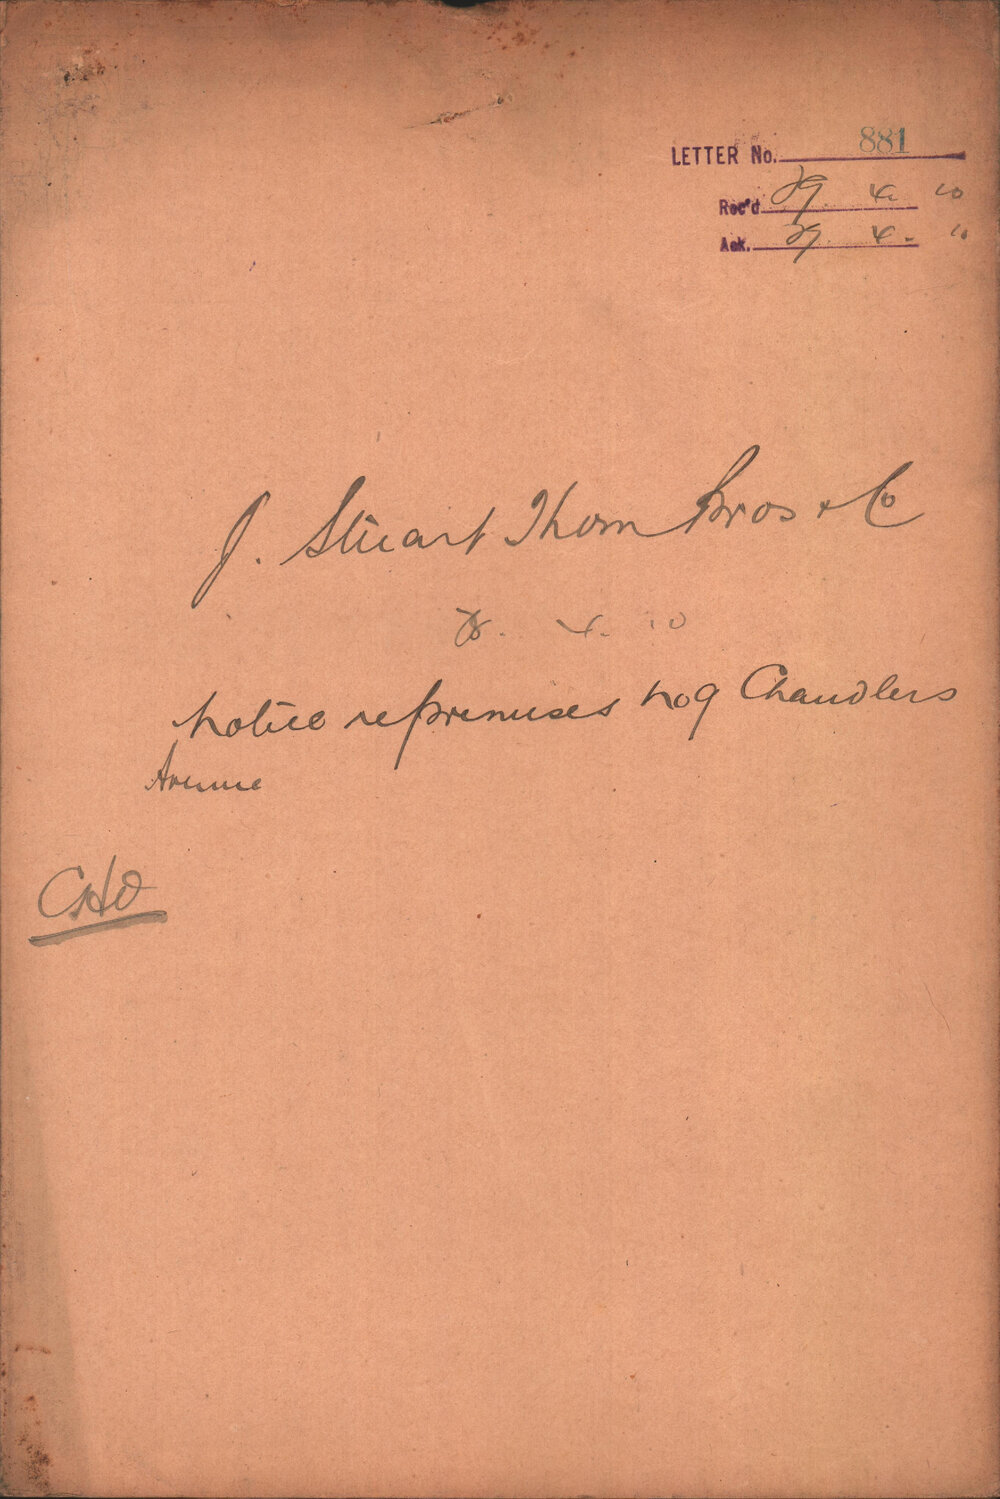 LETTER No. 881
Rec'd 29. 4. 10
Ack. 29. 4. 10
J. Stuart Thom Bros & Co
28. 4. 10
Notice re premises No 9 Chandlers
Avenue
CHO